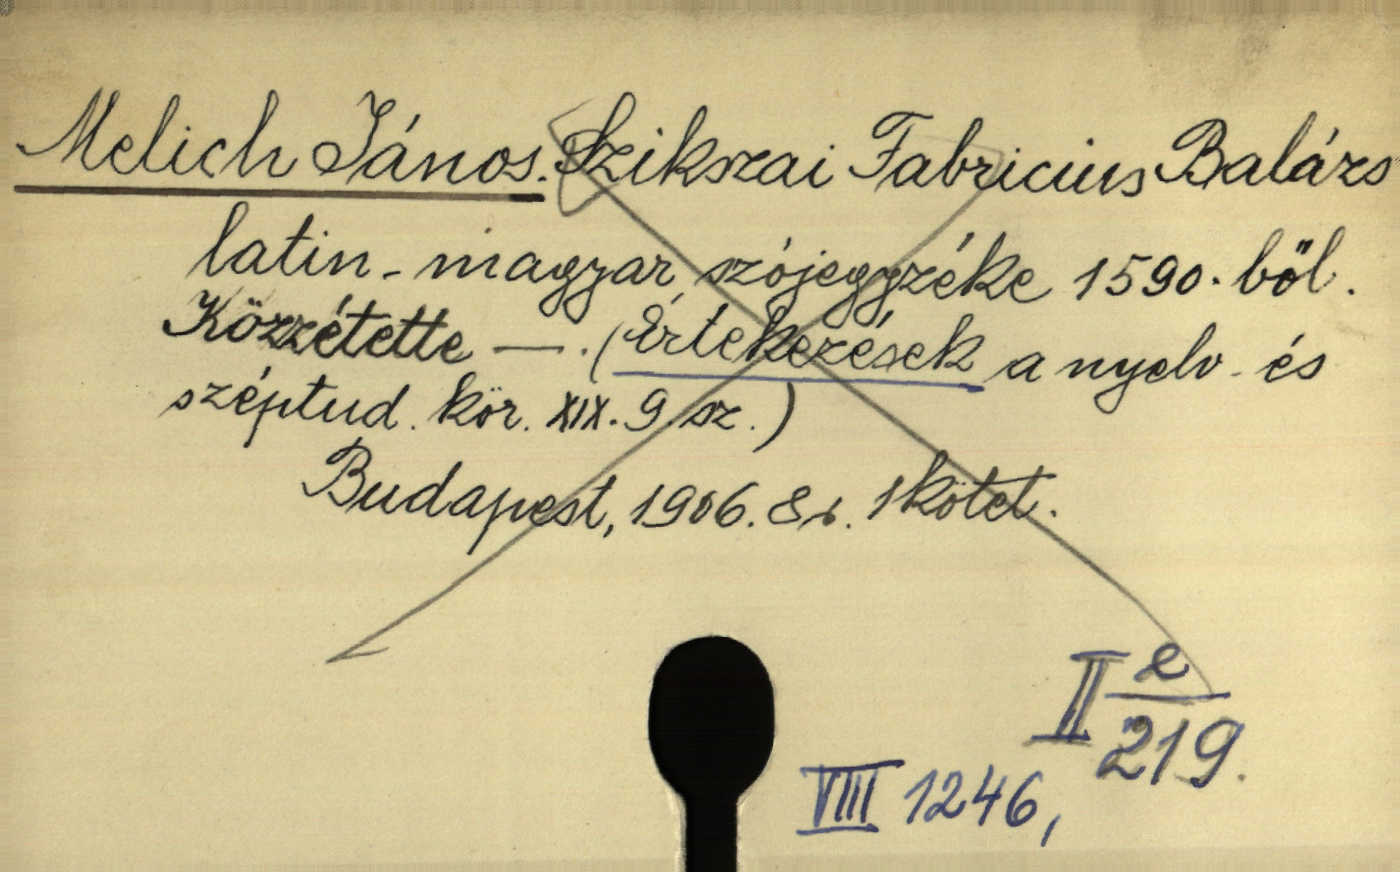 Melich János. Szikszai Fabricius Balázs
latin-magyar szójegyzéke 1590. ből.
Közzétette —. (Értekezések a nyelv- és
széptud. kör. XIX. 9. sz.)
Budapest, 1906. 8r. 1 kötet.
II e/219.
VIII 1246,